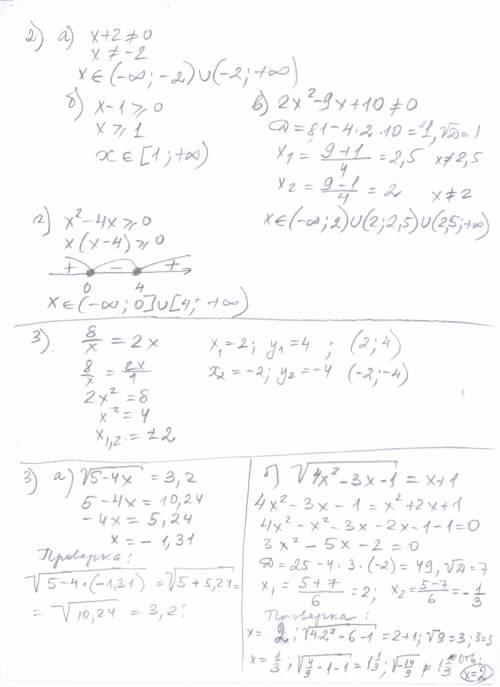 2) а) x+2≠0
x≠-2
x∈(-∞;-2)∪(-2;+∞)
б) x-1⩾0
x⩾1
x∈[1;+∞)
в) 2x²-9x+10≠0
D=81-4·2·10=1, √D=1
x₁=(9+1)/4=2,5 x≠2,5
x₂=(9-1)/4=2 x≠2
x∈(-∞;2)∪(2;2,5)∪(2,5;+∞)
г) x²-4x⩾0
x(x-4)⩾0
+ - +
0 4
x∈(-∞;0]∪[4;+∞)
3) 8/x=2x
8/x=2x/1
2x²=8
x²=4
x₁,₂=±2
x₁=2; y₁=4 ; (2;4)
x₂=-2; y₂=-4 (-2;-4)
3) а) √(5-4x)=3,2
5-4x=10,24
-4x=5,24
x=-1,31
Проверка:
√(5-4·(-1,31))=√(5+5,24)=
=√(10,24)=3,2
б) √(4x²-3x-1)=x+1
4x²-3x-1=x²+2x+1
4x²-x²-3x-2x-1-1=0
3x²-5x-2=0
D=25-4·3·(-2)=49, √D=7
x₁=(5+7)/6=2; x₂=(5-7)/6=-1/3
Проверка:
x=2; √(4·2²-6-1)=2+1; √9=3; 3=3
x=1/3; √(4/9-1-1)=1 1/3; √(-14/9)≠1 1/3 Отв:
x=2